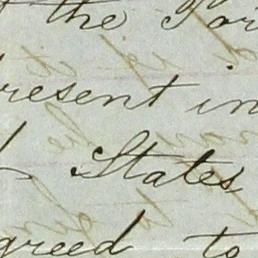 the
resent in
States
greed to